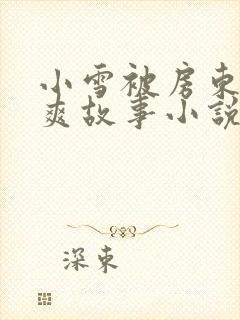 小雪被房东
爽故事小説
深東